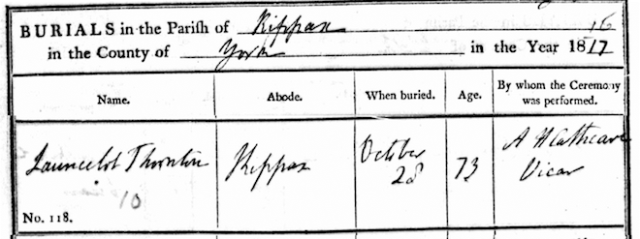 BURIALS in the Parish of Kippax 16
in the County of York in the Year 1817
Name. Abode. When buried. Age. By whom the Ceremony was performed.
Launcelot Thornton Kippax October 28 73 A Heathcave Vicar
10
No. 118.